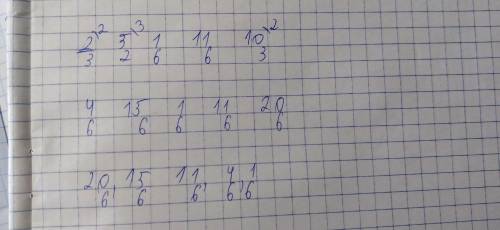 2/3\2 5/2\3 1/6 11/6 10/3\2
4/6 15/6 1/6 11/6 20/6
20/6, 15/6 11/6, 4/6, 1/6